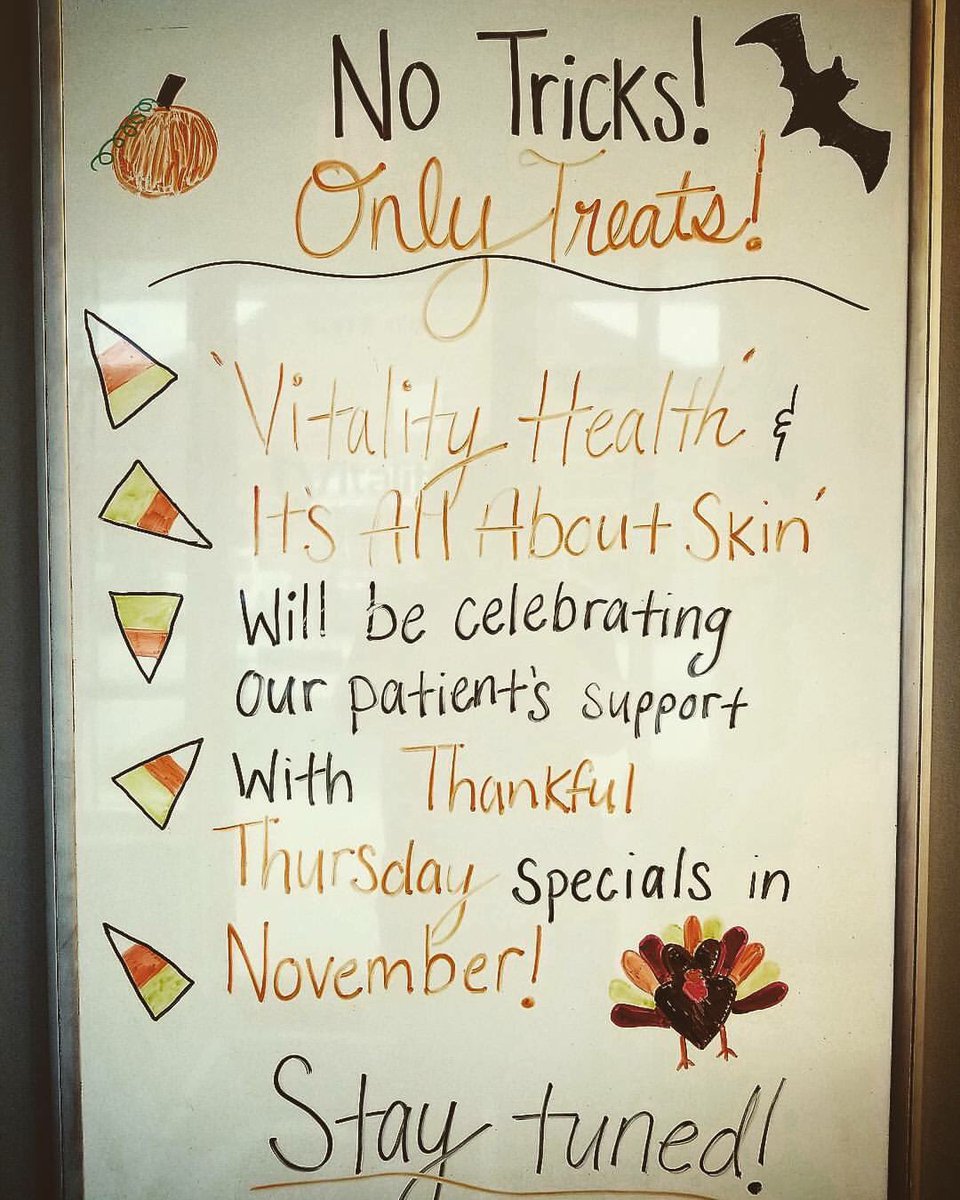 No Tricks!
Only Treats!
'Vitality Health' &
It's All About Skin'
Will be celebrating
our patient's support
With Thankful
Thursday specials in
November!
Stay tuned!